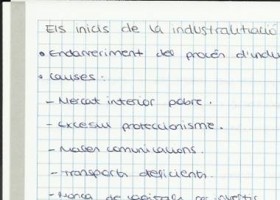 Els inicis de la industralització
• Endarreriment del procés d'indu
• Causes:
- Mercat interior pobre.
- Excesiu proteccionisme.
- Males comunicacions.
- Transports deficients.
- Manca de capitals per invertir